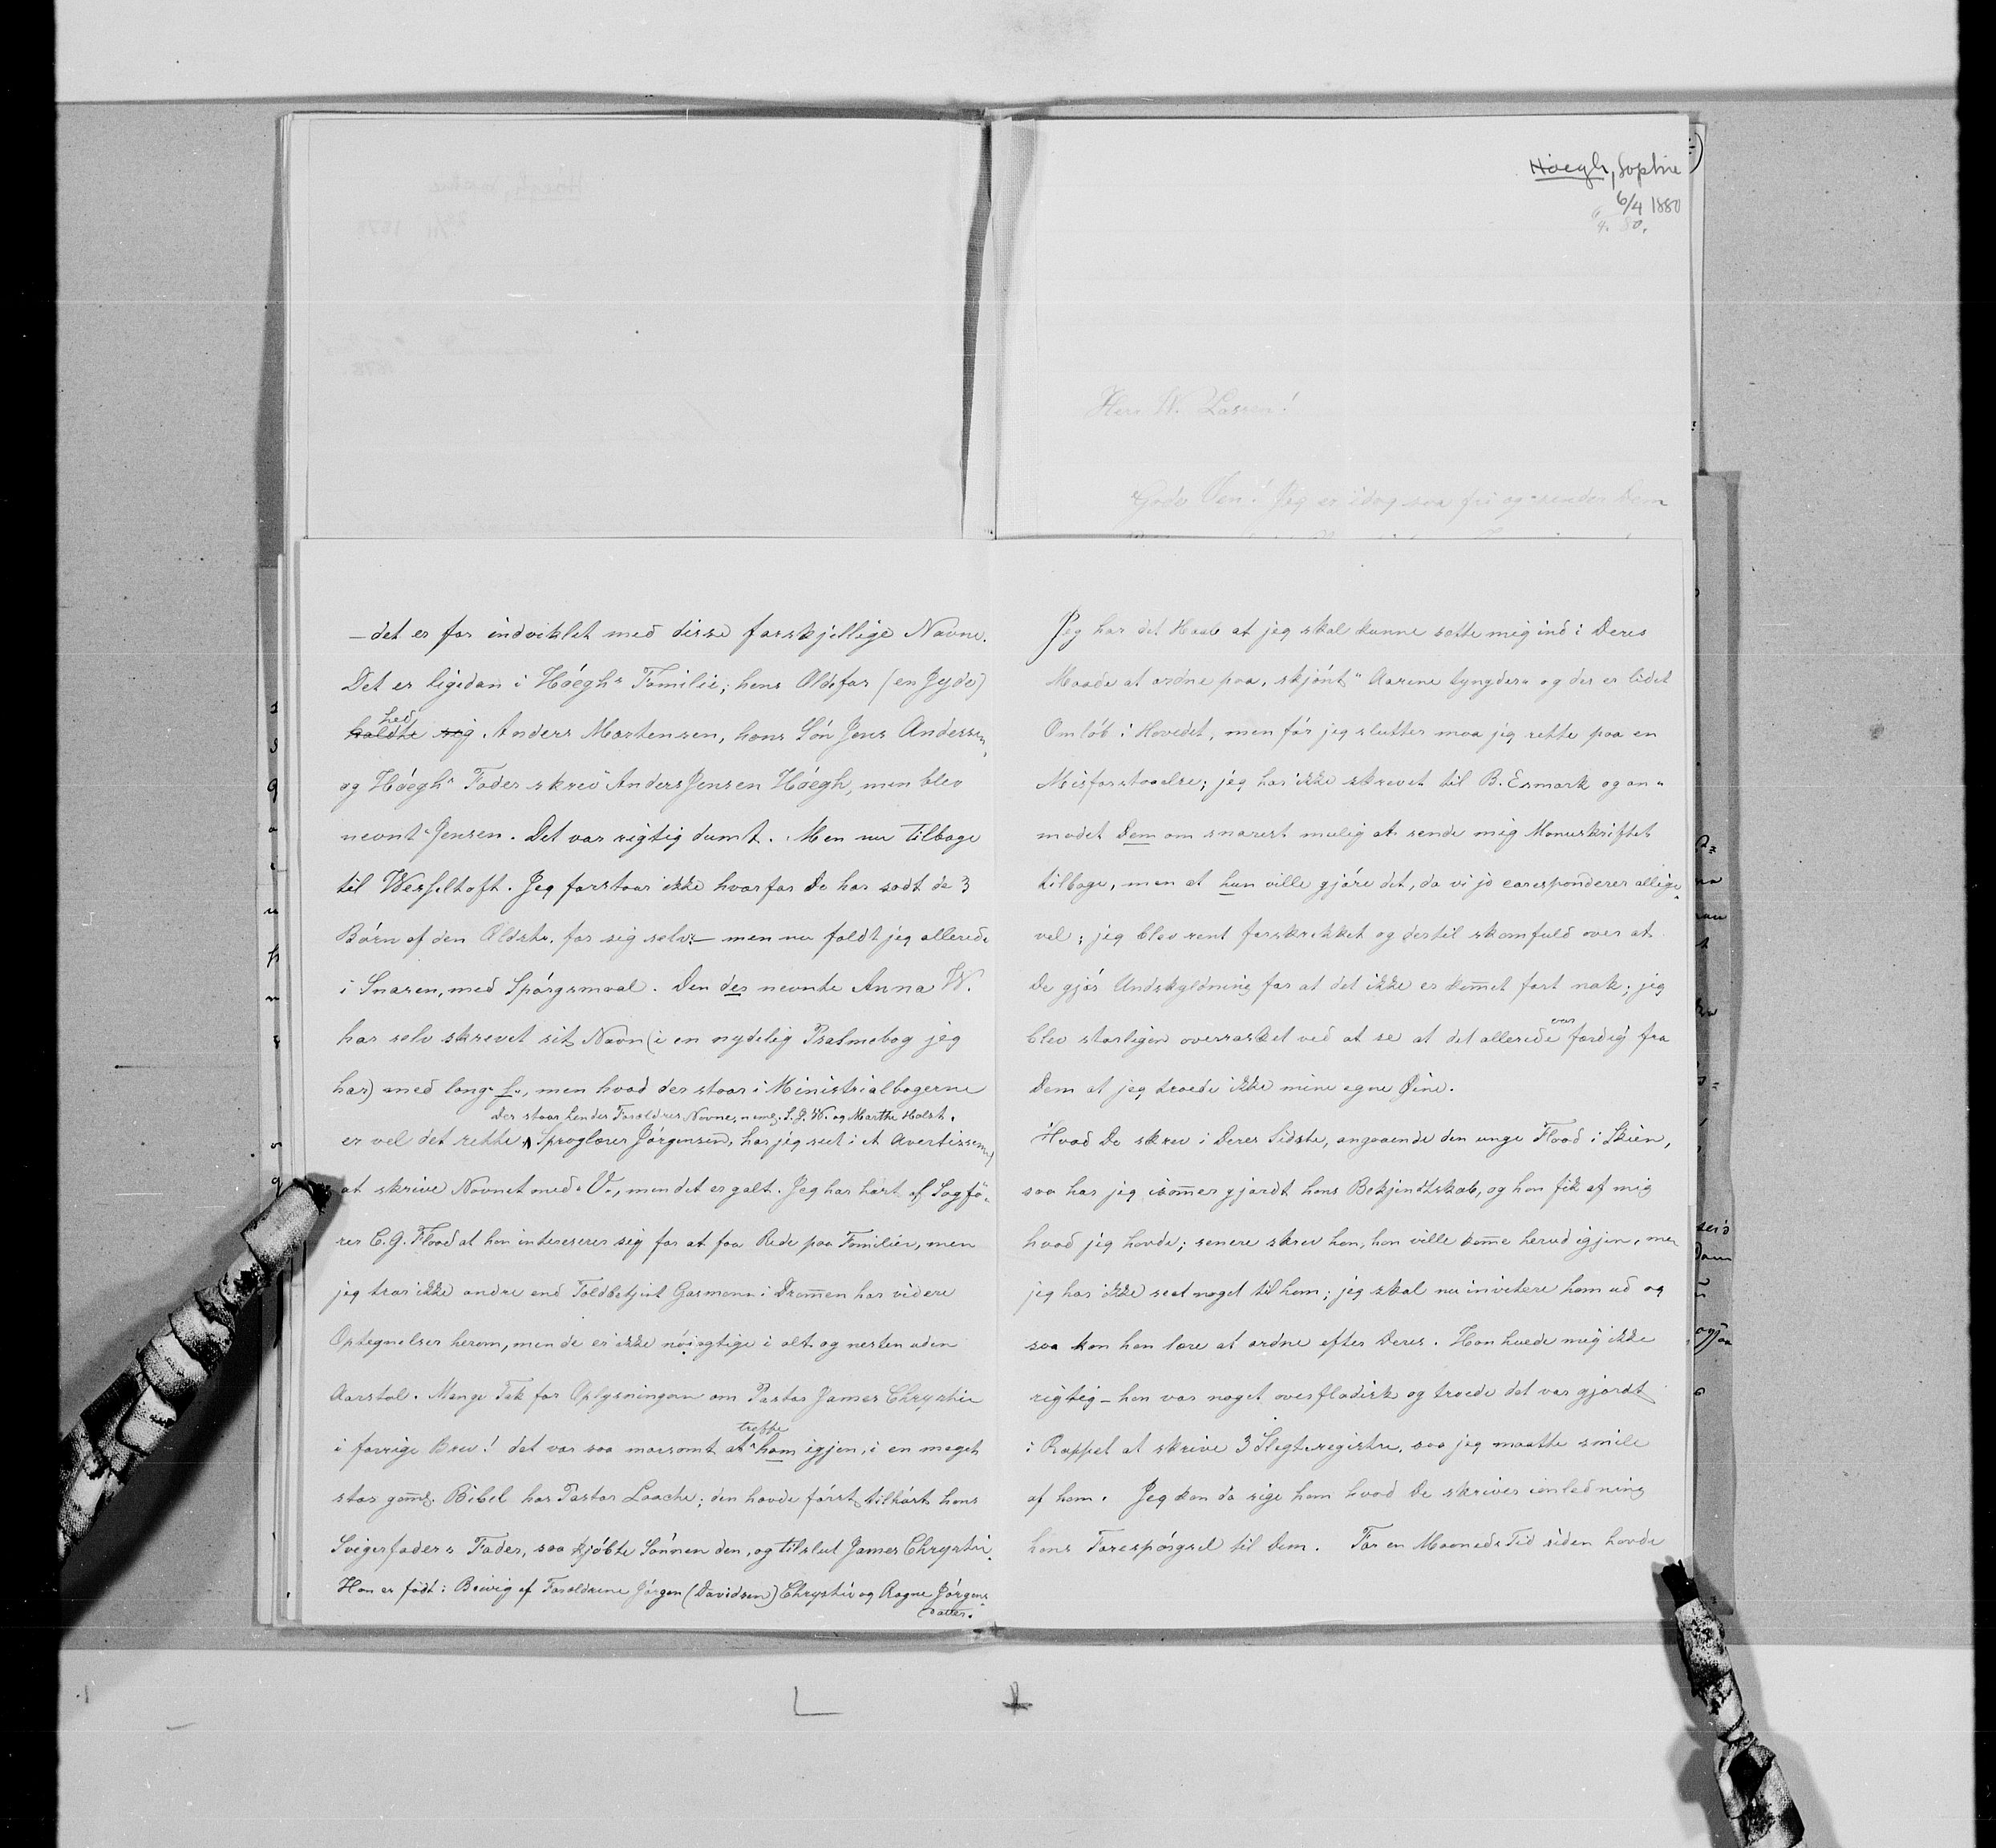 Höegh, Sophie
6/4 1880
6/4. 80.
Herr W. Lassen!
Gode Ven! Jeg er idag saa fri og sender Dem
– det er for indviklet med disse forskjellige Navne.
Det er ligedan i Höeghs Familie; hans Oldefar (en Jyde)
hed
holdte sig Anders Mortensen, hans Sön Jens Andersen,
og Höeghs Fader skrev Anders Jensen Höegh, men blev
nevnt Jensen. Det var rigtig dumt. Men nu tilbage
til Wesseltoft. Jeg forstaar ikke hvorfor De har sadt de 3
Börn af den Ældste for sig selv? – men nu faldt jeg allerede
i Snaren, med Spörgsmaal. Den der nevnte Anna W.
har selv skrevet sit Navn (i en nydelig Psalmebog jeg
har) med lang "ſ", men hvad der staar i Ministrialbogerne
Der staar hendes Foreldres Navne, neml. S. J. W. og Marthe Holst.
er vel det rette. Sproglærer Jörgensen, har jeg seet i et Avertissem.
at skrive Navnet med "V", men det er galt. Jeg har hört af Sagfö-
rer C. G. Flood at han intereserer sig for at faa Rede paa Familien, men
jeg tror ikke andre end Toldbetjent Garmann i Drammen har videre
Optegnelser herom, men de er ikke nöiagtige i alt og nesten uden
Aarstal. Mange Tak for Oplysningerne om Pastor James Chrystie
treffe
i forrige Brev! det var saa morsomt at ham igjen, i en meget
stor gaml. Bibel har Pastor Laache; den havde först tilhört hans
Svigerfaders Fader, saa kjöbte Sönnen den, og tilslut James Chrystie.
Han er födt i Brevig af Foreldrene Jörgen (Davidsen) Chrystie og Ragne Jörgens-
datter.
Jeg har det Haab at jeg skal kunne sette mig ind i Deres
Maade at ordne paa, skjönt "Aarene tynger" og der er lidet
Omlöb i Hovedet, men för jeg slutter maa jeg rette paa en
Misforstaaelse; jeg har ikke skrevet til B. Esmark og an-
modet Dem om snarest mulig at sende mig Manuskriftet
tilbage, men at hun ville gjöre det, da vi jo coresponderer allige-
vel; jeg blev rent forskrekket og dertil skamfuld over at
De gjör Undskyldning for at det ikke er kommet fort nok; jeg
var
blev storligen overrasket ved at se at det allerede færdig fra
Dem at jeg troede ikke mine egne Öine.
Hvad De skrev i Deres Sidste, angaaende den unge Flood i Skien,
saa har jeg isommer gjordt hans Bekjendtskab, og han fik af mig
hvad jeg havde; senere skrev han, han ville komme herud igjen, men
jeg har ikke seet noget til ham; jeg skal nu invitere ham ud og
saa kan han lære at ordne efter Deres. Han huede mig ikke
rigtig – han var noget overfladisk og troede det var gjordt
i Rappet at skrive 3 Slegtregistre, saa jeg maatte smile
af ham. Jeg kan da sige ham hvad De skriver ianledning
hans Forespörgsel til Dem. For en Maaneds Tid siden havde